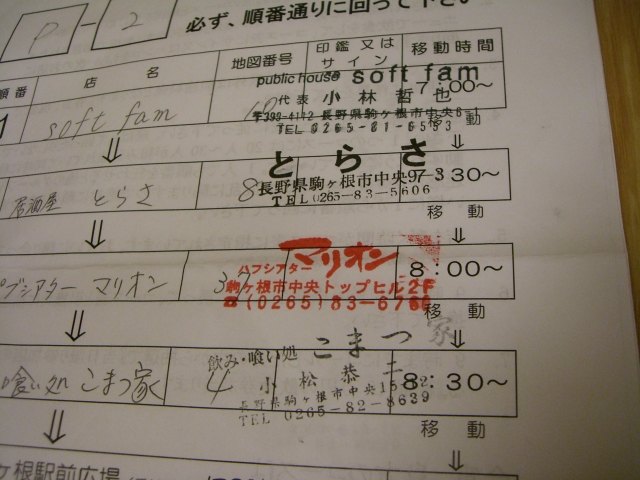 P - 2
必ず、順番通りに回って下さい
順番 店 名 地図番号 印鑑又はサイン 移動時間
1 soft fam 7:00～
public house soft fam
代表 小林哲也
長野県駒ヶ根市中央
TEL 0265-81-6583
⇩ 移動 ⇩
居酒屋 とらさ 8 7:30～
とらさ
長野県駒ヶ根市中央97-3
TEL 0265-83-5606
⇩ 移動 ⇩
パブシアター マリオン 37 8:00～
パブシアター マリオン
駒ヶ根市中央トップヒル2F
☎(0265)83-6766
⇩ 移動 ⇩
喰い処 こまつ家 4 8:30～
飲み・喰い処 こまつ家
小松恭二
長野県駒ヶ根市中央15
TEL 0265-82-8639
⇩ 移動 ⇩
ヶ根駅前広場